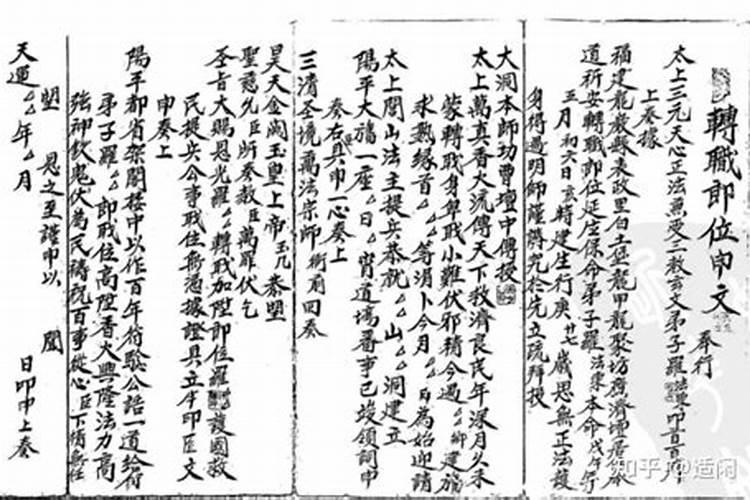 轉職即位申文 奉行
太上三元天心正法兼受三教玄文弟子羅法 印百
上奏據
福建龍巖縣表政里白土 龍甲龍聚坊齋壇居
道祈安轉職即位延生保命弟子羅法 本命戊午年
三月初六日 時建生行庚廿七歲思無正法護
身得過明師 立疏拜授
大洞本師功曹壇中傳授
太上萬真香火流傳天下救濟良民年深月久未
蒙轉職身卑職小難伏邪精今過 卿建旛
求熟緣首 等涓卜今月 日為始迎請
太上閭山法主提兵恭就 山 洞建立
陽平大旛一座 日 宵道場醫事已竣領詞申
奏右具申一心奏上
三清圣境萬法宗師 前 回奏
昊天金闕玉皇上帝玉几 奏盟
聖慈允臣所奏敕臣萬罪伏乞
圣旨大賜恩光羅 轉職加陞即位羅 護國救
民提兵公事職任無憑據證具立半印臣文
申奏上
陽平都省架閣樓中以作百年符驗公話一道給付
弟子羅 即職位高陞香火興隆法力高
強神欽鬼伏為民禱祝百事從心臣下情無任
盟 恩之至謹申以 聞
天運 年 月 日叩申上奏
知乎 @适闲